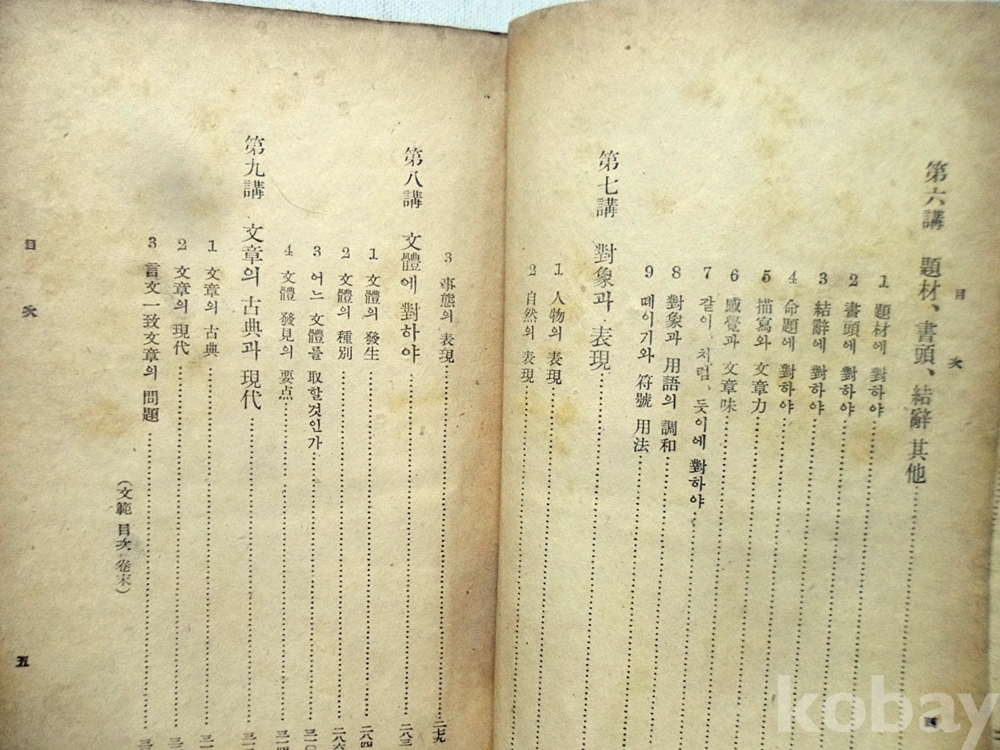 目次
第六講 題材、書頭、結辭 其他
1 題材에 對하야
2 書頭에 對하야
3 結辭에 對하야
4 命題에 對하야
5 描寫와 文章力
6 感覺과 文章味
7 같이、처럼、듯이에 對하야
8 對象과 用語의 調和
9 떼이기와 符號 用法
第七講 對象과 表現
1 人物의 表現
2 自然의 表現
3 事態의 表現
第八講 文體에 對하야
1 文體의 發生
2 文體의 種別
3 어느 文體를 取할것인가
4 文體 發見의 要点
第九講 文章의 古典과 現代
1 文章의 古典
2 文章의 現代
3 言文一致文章의 問題
(文範 目次 卷末)
目次
五
kobay